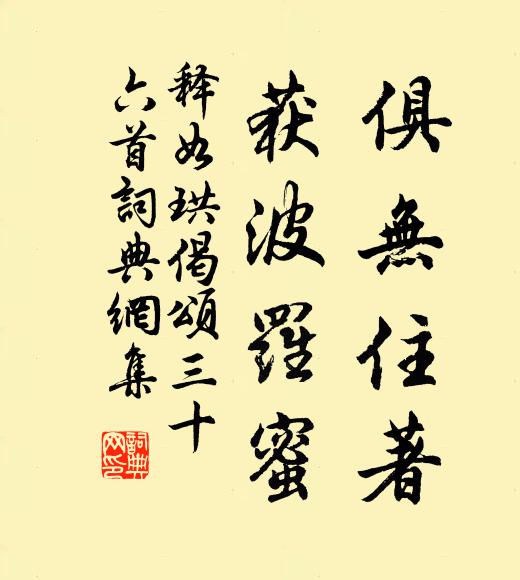 俱無住著
获波羅蜜
释如珙偈頌三十
六首詞典網集
詞典網印